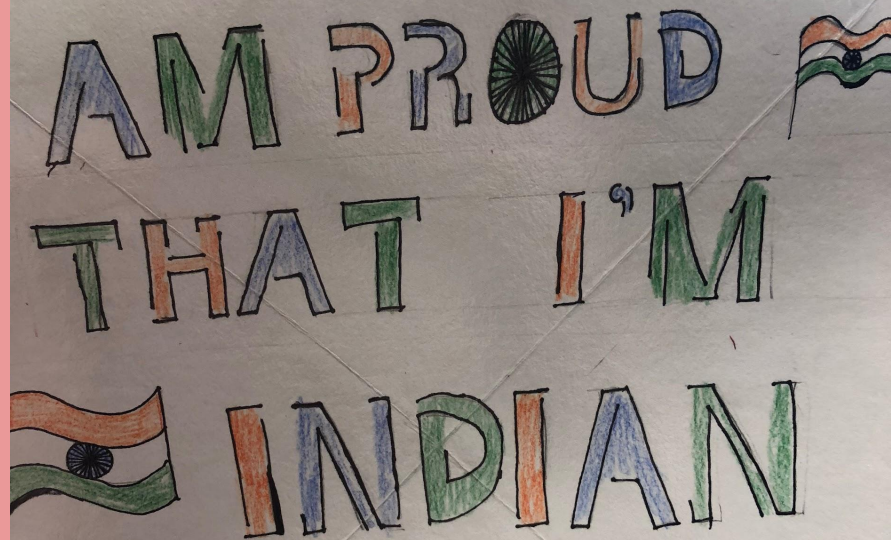 AM PROUD
THAT I'M
INDIAN